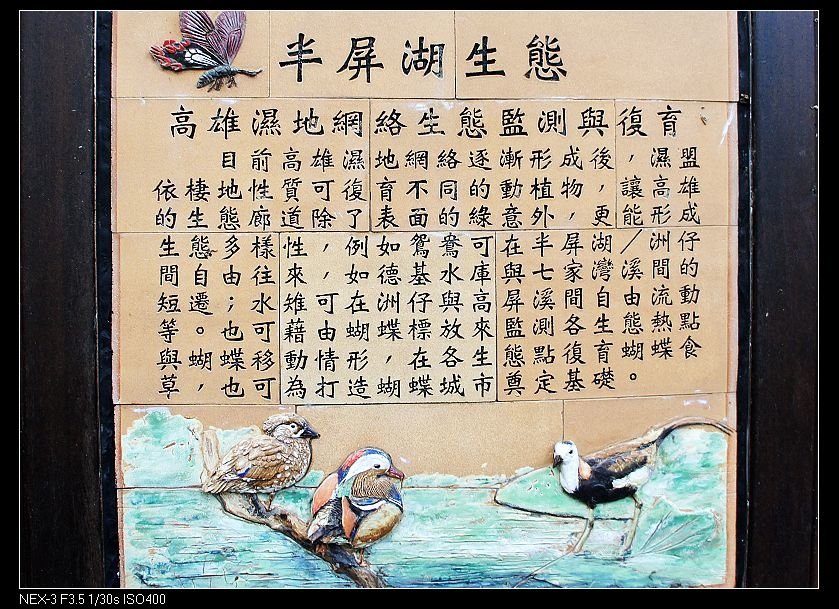 半屏湖生態
高雄濕地網絡生態監測與復育
目前高雄濕地網絡逐漸形成後，濕盟
依棲地性質可復育不同的動植物，讓高雄
的生態廊道除了表面的綠意外，更能形成
生態多樣性，例如鴛鴦可在半屏湖／洲仔
間自由往來，如德基水庫與七家灣溪間的
短遷；水雉可在洲仔與高屏溪間自由流動
等。也可藉由蝴蝶標放來監測各生態熱點
與蝴蝶移動情形，在各生態點復育蝴蝶食
草，也可為打造蝴蝶城市奠定基礎。
NEX-3 F3.5 1/30s ISO400